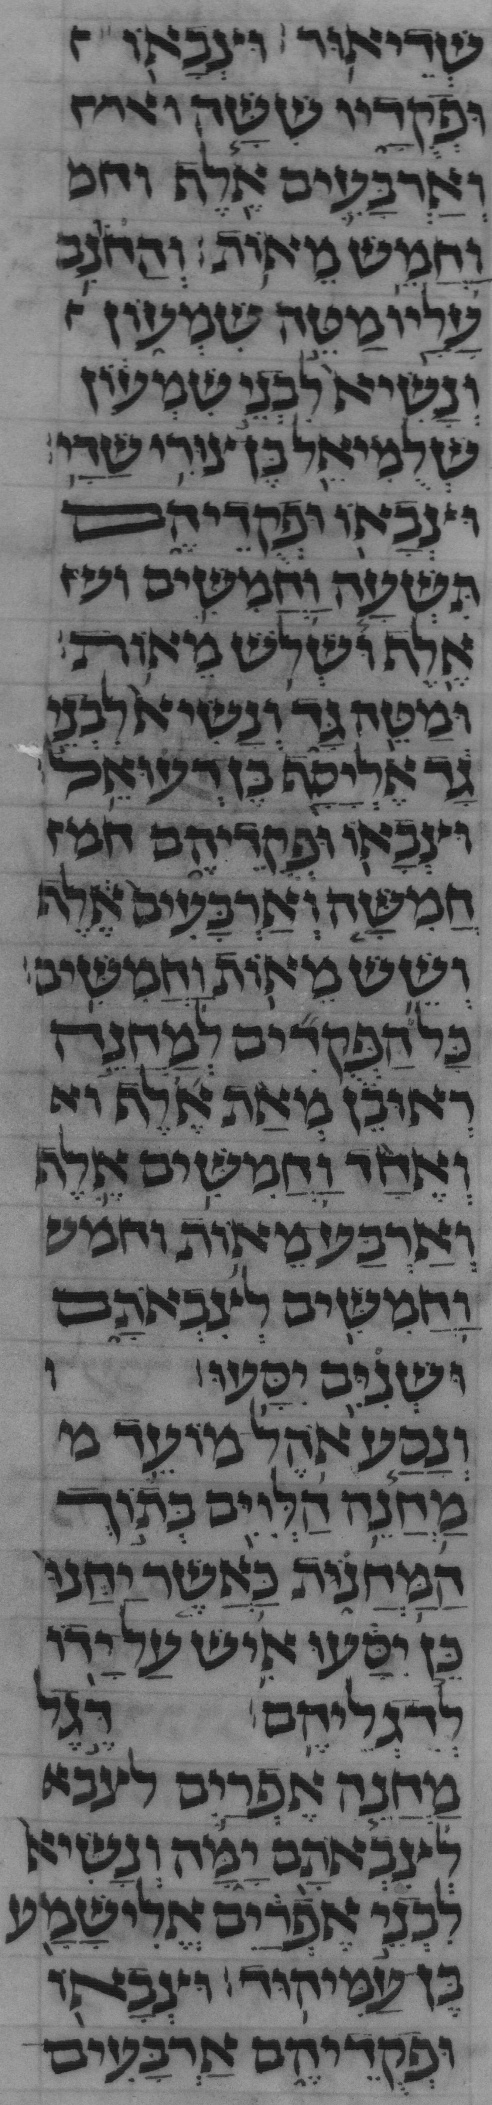 שְׁדֵיאוּר׃ וּצְבָאוֹ
וּפְקֻדָיו שִׁשָּׁה ואר
וְאַרְבָּעִים אֶלֶף וחמ
וַחֲמֵשׁ מֵאוֹת׃ וְהַחֹנִ֥ם
עָלָיו מַטֵּה שִׁמְעוֹן
וְנָשִׂיא לִבְנֵי שִׁמְעוֹן
שְׁלֻמִיאֵל בֶּן צוּרִי שַׁדָּי׃
וּצְבָאוֹ וּפְקֻדֵיהֶם
תִּשְׁעָה וַחֲמִשִּׁים וש
אֶלֶף וּשְׁלֹשׁ מֵאוֹת׃
וּמַטֵּה גָּד וְנָשִׂיא לִבְנֵי
גָד אֶלְיָסָף בֶּן רְעוּאֵל׃
וּצְבָאוֹ וּפְקֻדֵיהֶם חמ
חֲמִשָּׁה וְאַרְבָּעִים אֶלֶף
וְשֵׁשׁ מֵאוֹת וַחֲמִשִּׁים׃
כָּל הַפְּקֻדִים לְמַחֲנֵה
רְאוּבֵן מְאַת אֶלֶף וא
וְאֶחָד וַחֲמִשִּׁים אֶלֶף
וְאַרְבַּע מֵאוֹת וחמש
וַחֲמִשִּׁים לְצִבְאֹתָם
וּשְׁנִיִּם יִסָּעוּ׃ ו
וְנָסַע אֹהֶל מוֹעֵד מ
מַחֲנֵה הַלְוִיִּם בְּתוֹךְ
הַמַּחֲנֹת כַּאֲשֶׁר יַחֲנוּ
כֵּן יִסָּעוּ אִישׁ עַל יָדוֹ
לְדִגְלֵיהֶם׃ דֶּגֶל
מַחֲנֵה אֶפְרַיִם לצבא
לְצִבְאֹתָם יָמָּה וְנָשִׂיא
לִבְנֵי אֶפְרַיִם אֱלִישָׁמָע
בֶּן עַמִּיהוּד׃ וּצְבָאוֹ
וּפְקֻדֵיהֶם אַרְבָּעִים